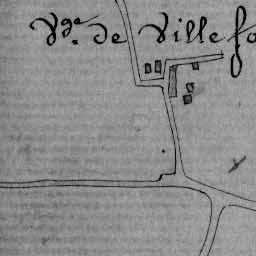 Vge. de Villefo